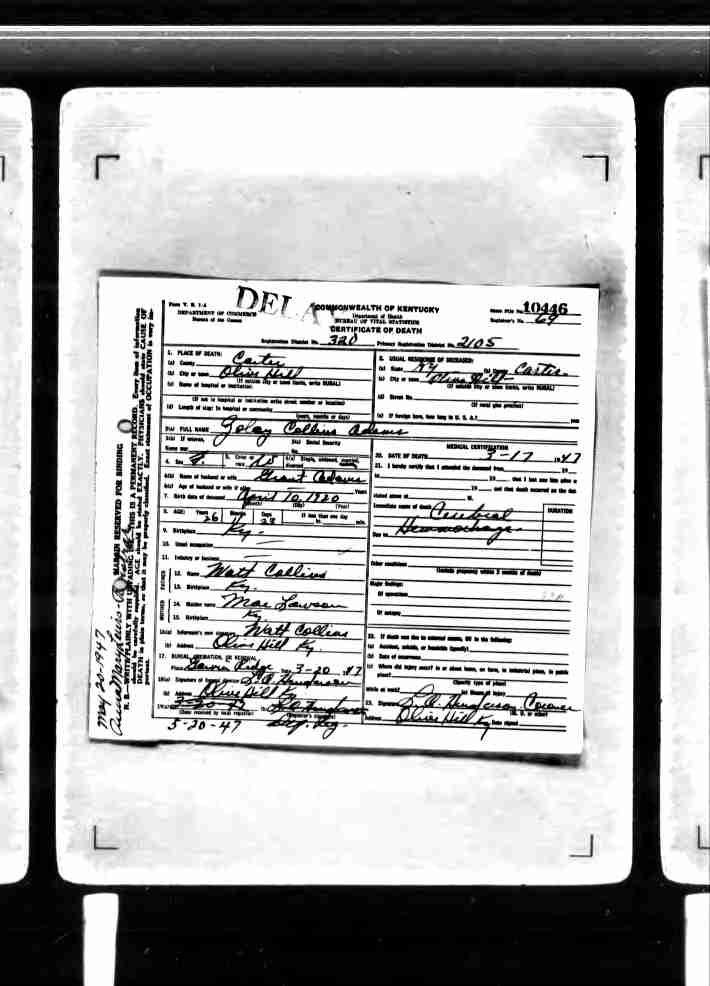 Form V. S. 1-A
DEPARTMENT OF COMMERCE
Bureau of the Census
DELA
COMMONWEALTH OF KENTUCKY
Department of Health
BUREAU OF VITAL STATISTICS
CERTIFICATE OF DEATH
State File No. 10446
Registrar's No. 69
Registration District No. 320 Primary Registration District No. 2105
1. PLACE OF DEATH:
(a) County Carter
(b) City or town Olive Hill
(If outside city or town limits, write RURAL)
(c) Name of hospital or institution:
(If not in hospital or institution write street number or location)
(d) Length of stay: In hospital or community
(years, months or days)
2. USUAL RESIDENCE OF DECEASED:
(a) State Ky (b) County Carter
(c) City or town Olive Hill
(If outside city or town limits, write RURAL)
(d) Street No.
(If rural give precinct)
(e) If foreign born, how long in U. S. A.? years
3(a) FULL NAME Collins Adams
3(b) If veteran, name war 3(c) Social Security No.
4. Sex F. 5. Color or race W 6(a) Single, widowed, married, divorced
6(b) Name of husband or wife Grant Adams
6(c) Age of husband or wife if alive Years
7. Birth date of deceased April 10, 1920
(Month) (Day) (Year)
8. AGE: Years 26 Months Days 23 If less than one day
hr. min.
9. Birthplace Ky.
10. Usual occupation
11. Industry or business
FATHER
12. Name Watt Collins
13. Birthplace Ky.
MOTHER
14. Maiden name Mae Lawson
15. Birthplace Ky.
16(a) Informant's own signature Watt Collins
(b) Address Olive Hill Ky.
17. BURIAL, CREMATION, OR REMOVAL
Place Ridge Date 3-20 1947
18(a) Signature of funeral director Henderson
(b) Address Olive Hill Ky
19(a) 3-20-47 (b) Henderson
(Date received by local registrar) (Registrar's signature)
5-20-47 Dep. Reg.
MEDICAL CERTIFICATION
20. DATE OF DEATH 3-17 1947
21. I hereby certify that I attended the deceased from 19
to 19 , that I last saw him alive on
19 , and that death occurred on the date
stated above at M.
Immediate cause of death Cerebral
Hemmorhage
DURATION
Due to
Other conditions
(Include pregnancy within 3 months of death)
Major findings:
Of operations
Of autopsy
22. If death was due to external causes, fill in the following:
(a) Accident, suicide, or homicide (specify)
(b) Date of occurrence
(c) Where did injury occur? in or about home, on farm, in industrial place, in public place?
(Specify type of place)
While at work? (e) Means of injury
23. Signature Henderson Coroner
(M. D. or other)
Address Olive Hill Ky Date signed
MARGIN RESERVED FOR BINDING
N. B.—WRITE PLAINLY WITH UNFADING INK—THIS IS A PERMANENT RECORD. Every item of information
should be carefully supplied. AGE should be stated EXACTLY. PHYSICIANS should state CAUSE OF
DEATH in plain terms, so that it may be properly classified. Exact statement of OCCUPATION is very important.
May 20-1947